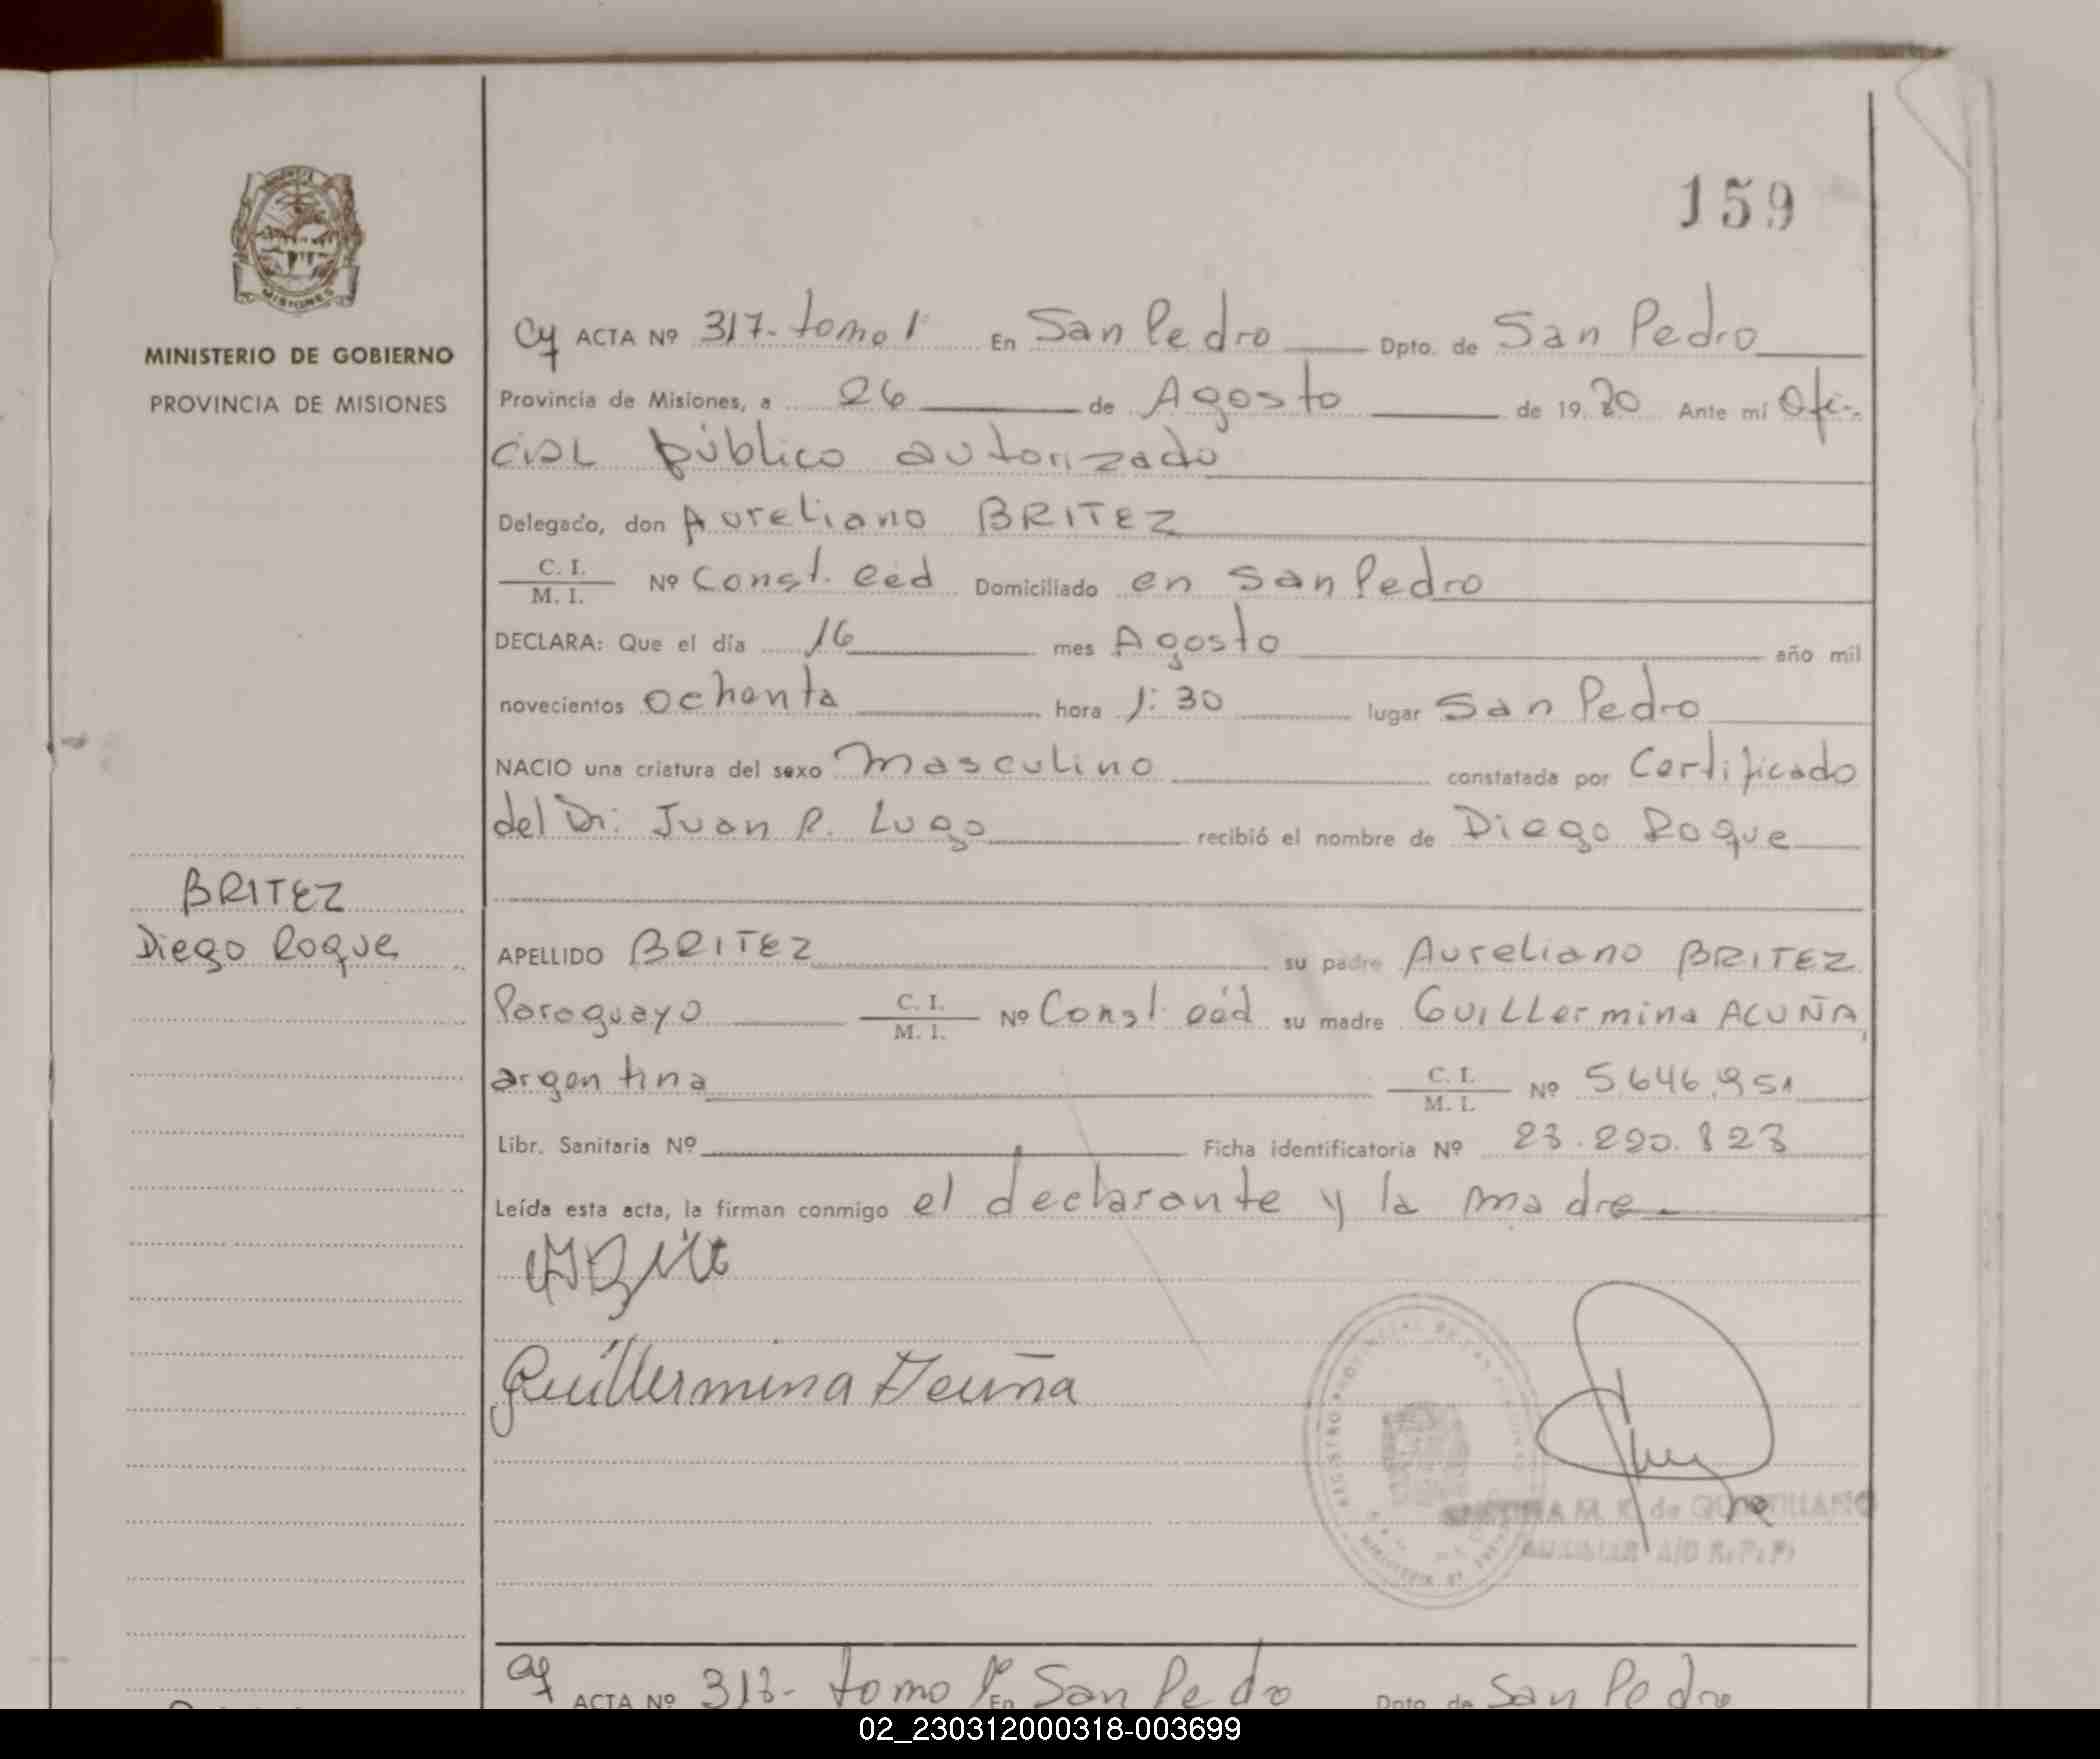 159
MISIONES
MINISTERIO DE GOBIERNO
PROVINCIA DE MISIONES
BRITEZ
Diego Roque
Cy ACTA Nº 317- tomo 1º En San Pedro Dpto. de San Pedro
Provincia de Misiones, a 26 de Agosto de 19 80 Ante mí Ofi-
cial público autorizado
Delegado, don Aureliano BRITEZ
C. I. / M. I. Nº Const. céd Domiciliado en San Pedro
DECLARA: Que el día 16 mes Agosto año mil
novecientos ochenta hora 1:30 lugar San Pedro
NACIO una criatura del sexo masculino constatada por Certificado
del Dr: Juan R. Lugo recibió el nombre de Diego Roque
APELLIDO BRITEZ su padre Aureliano BRITEZ
Paraguayo C. I. / M. I. Nº Const. céd su madre Guillermina ACUÑA,
argentina C. I. / M. I. Nº 5.646.951
Libr. Sanitaria Nº Ficha identificatoria Nº 23.220.823
Leída esta acta, la firman conmigo el declarante y la madre.
Guillermina Acuña
M. K. de QUINTILLANO
AUXILIAR A/C R.P.P.
Cy ACTA Nº 318- tomo 1º En San Pedro Dpto. de San Pedro
02_230312000318-003699